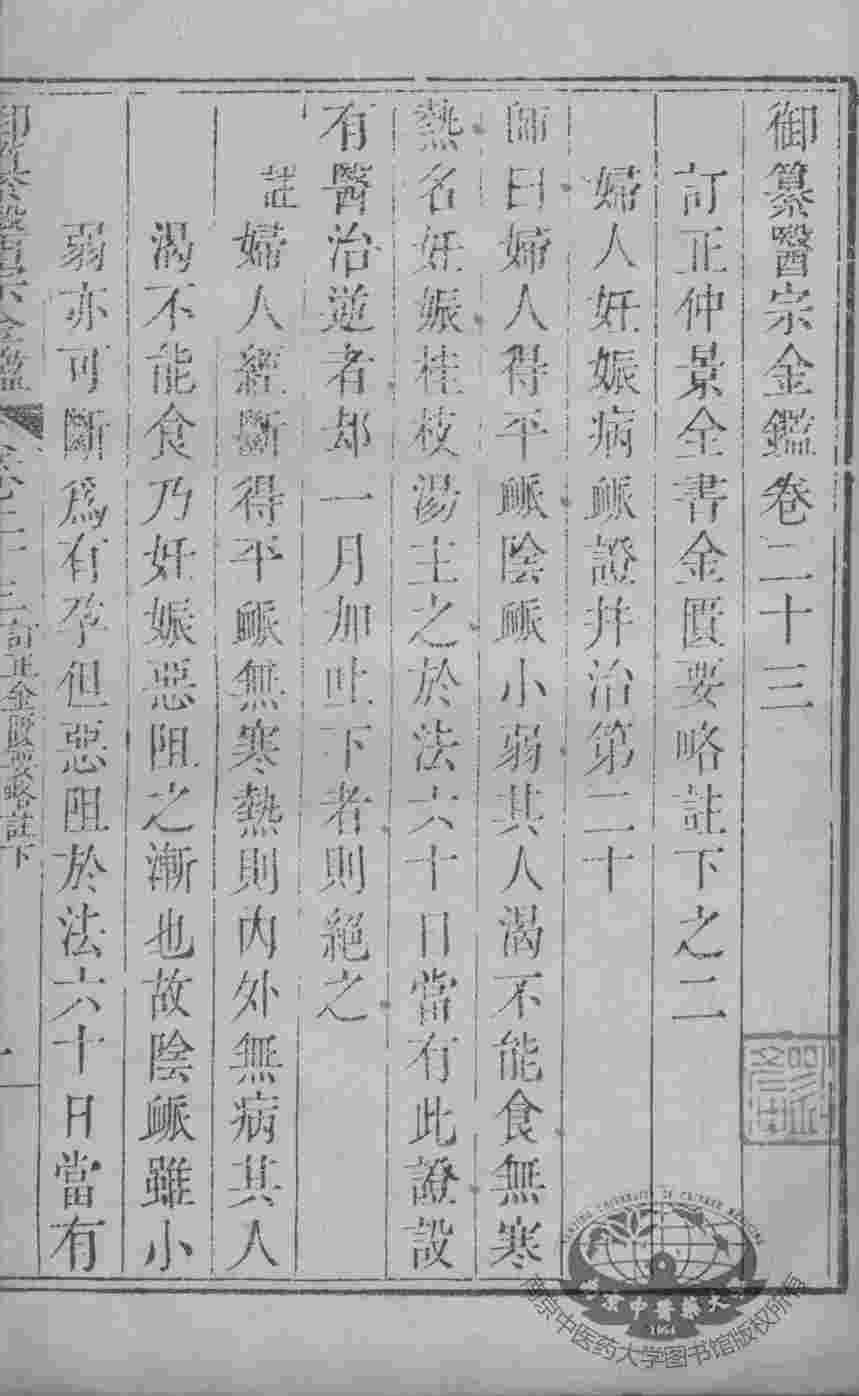 御纂醫宗金鑑卷二十三
訂正仲景全書金匱要略註下之二
婦人妊娠病脈證幷治第二十
師曰婦人得平脈陰脈小弱其人渴不能食無寒
熱名妊娠桂枝湯主之於法六十日當有此證設
有醫治逆者却一月加吐下者則絕之
註
婦人經斷得平脈無寒熱則內外無病其人
渴不能食乃妊娠惡阻之漸也故陰脈雖小
弱亦可斷爲有孕但惡阻於法六十日當有
御纂醫宗金鑑
卷二十三
訂正金匱要略註下
一
NANJING UNIVERSITY OF CHINESE MEDICINE
南京中醫藥大學
1954
南京中医药大学图书馆版权所有